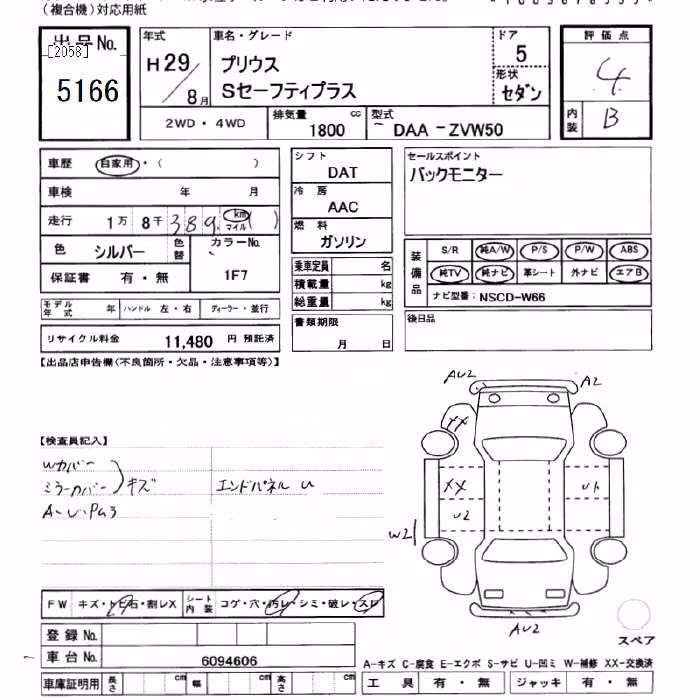 (複合機)対応用紙
出品No.
[2058]
5166
年式
H29/8月
車名・グレード
プリウス
Sセーフティプラス
ドア
5
形状
セダン
評価点
4
内装
B
2WD・4WD
排気量
1800 cc
型式
DAA -ZVW50
車歴 自家用・( )
車検 年 月
走行 1万 8千 389 km マイル ( )
色 シルバー 色替 カラーNo. 1F7
保証書 有・無
シフト
DAT
冷房
AAC
燃料
ガソリン
乗車定員 名
積載量 kg
総重量 kg
セールスポイント
バックモニター
装備品
S/R 純A/W P/S P/W ABS
純TV 純ナビ 革シート 外ナビ エアB
ナビ型番: NSCD-W66
モデル年式 年 ハンドル 左・右 ディーラー・並行
リサイクル料金 11,480 円 預託済
書類期限
月 日
後日品
【出品店申告欄(不良箇所・欠品・注意事項等)】
【検査員記入】
Wカバー
ミラーカバー
キズ
エンドパネル U
A-U・Pキズ
AU2
A2
XX
XX
U2
U1
W2
AU2
スペア
FW キズ・トビ石・割レX シート内装 コゲ・穴・汚レ・シミ・破レ・スレ
登録No.
車台No. 6094606
車庫証明用 長さ cm 幅 cm 高さ cm
A-キズ C-腐食 E-エクボ S-サビ U-凹ミ W-補修 XX-交換済
工具 有・無 ジャッキ 有・無